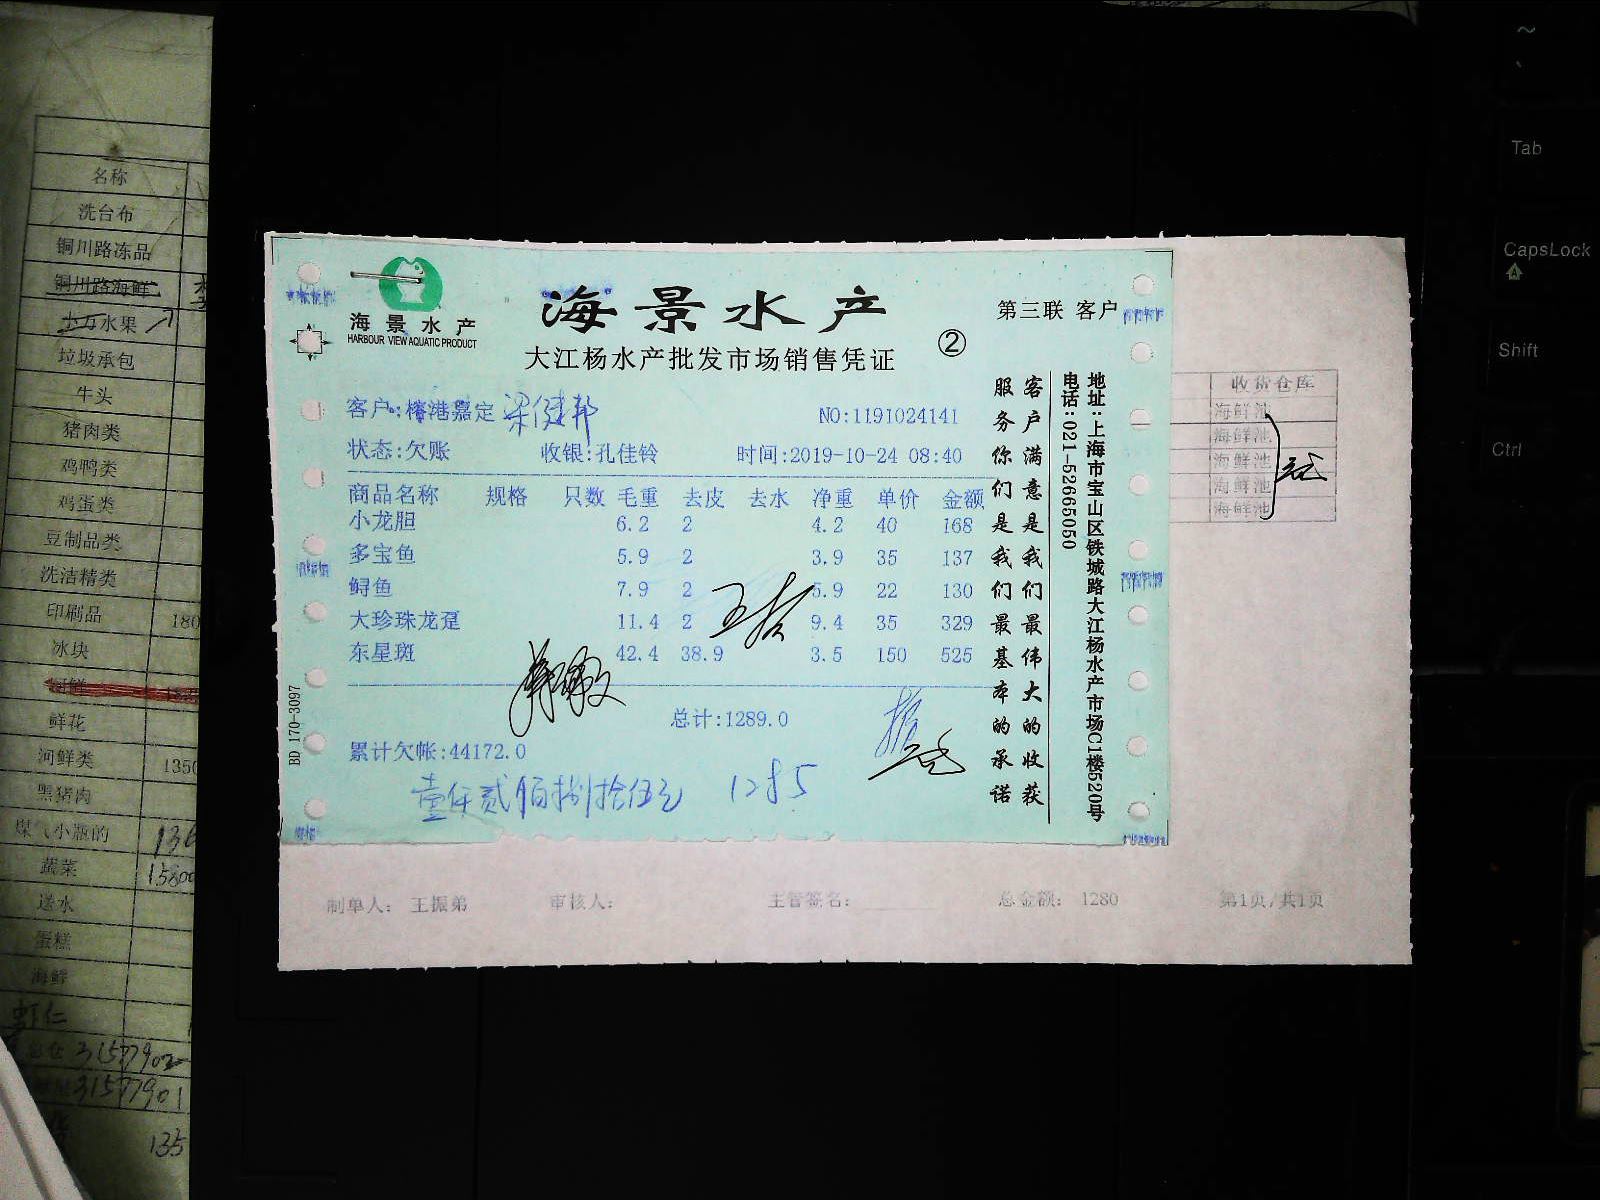 名称
洗台布
铜川路冻品
铜川路海鲜
水果
垃圾承包
牛头
猪肉类
鸡鸭类
鸡蛋类
豆制品类
洗洁精类
印刷品 180
冰块
鲜花
河鲜类 1350
黑猪肉
煤气小瓶的 136
蔬菜 15800
送水
蛋糕
海鲜
虾仁
31577902
31577901
135
海景水产
HARBOUR VIEW AQUATIC PRODUCT
海景水产
大江杨水产批发市场销售凭证
②
第三联 客户
客户:檊港嘉定 梁健邦
NO:1191024141
状态:欠账 收银:孔佳铃 时间:2019-10-24 08:40
商品名称 规格 只数 毛重 去皮 去水 净重 单价 金额
小龙胆 6.2 2 4.2 40 168
多宝鱼 5.9 2 3.9 35 137
鲟鱼 7.9 2 5.9 22 130
大珍珠龙趸 11.4 2 9.4 35 329
东星斑 42.4 38.9 3.5 150 525
总计:1289.0
累计欠帐:44172.0
壹仟贰佰捌拾伍元 1285
BD 170-3097
客户满意是我们最伟大的收获
服务你们是我们最基本的承诺
地址:上海市宝山区铁城路大江杨水产市场C1楼520号
电话:021-52665050
收货仓库
海鲜池
海鲜池
海鲜池
海鲜池
海鲜池
制单人: 王振弟 审核人: 主管签名: 总金额: 1280 第1页/共1页
~
Tab
CapsLock
Shift
Ctrl